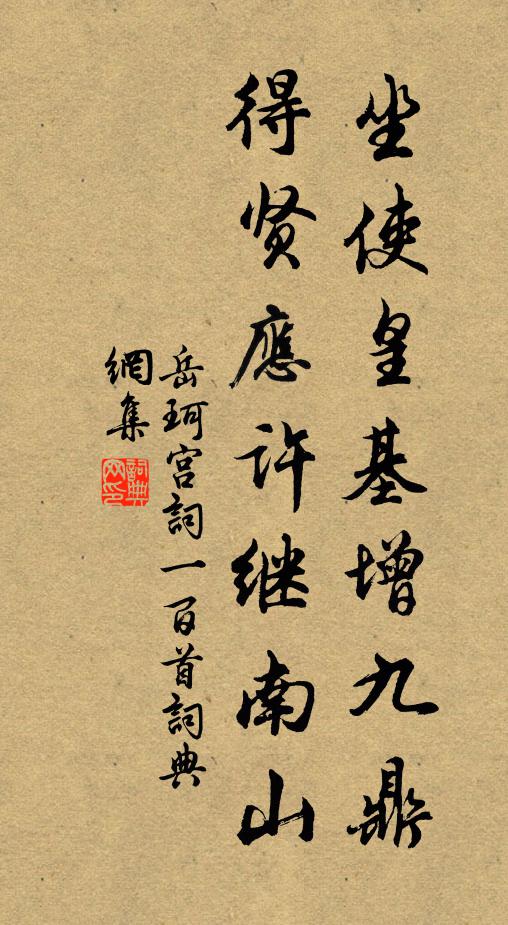 坐使皇基增九鼎
得贤應许继南山
岳珂宫詞一百首詞典
網集
詞典
网印